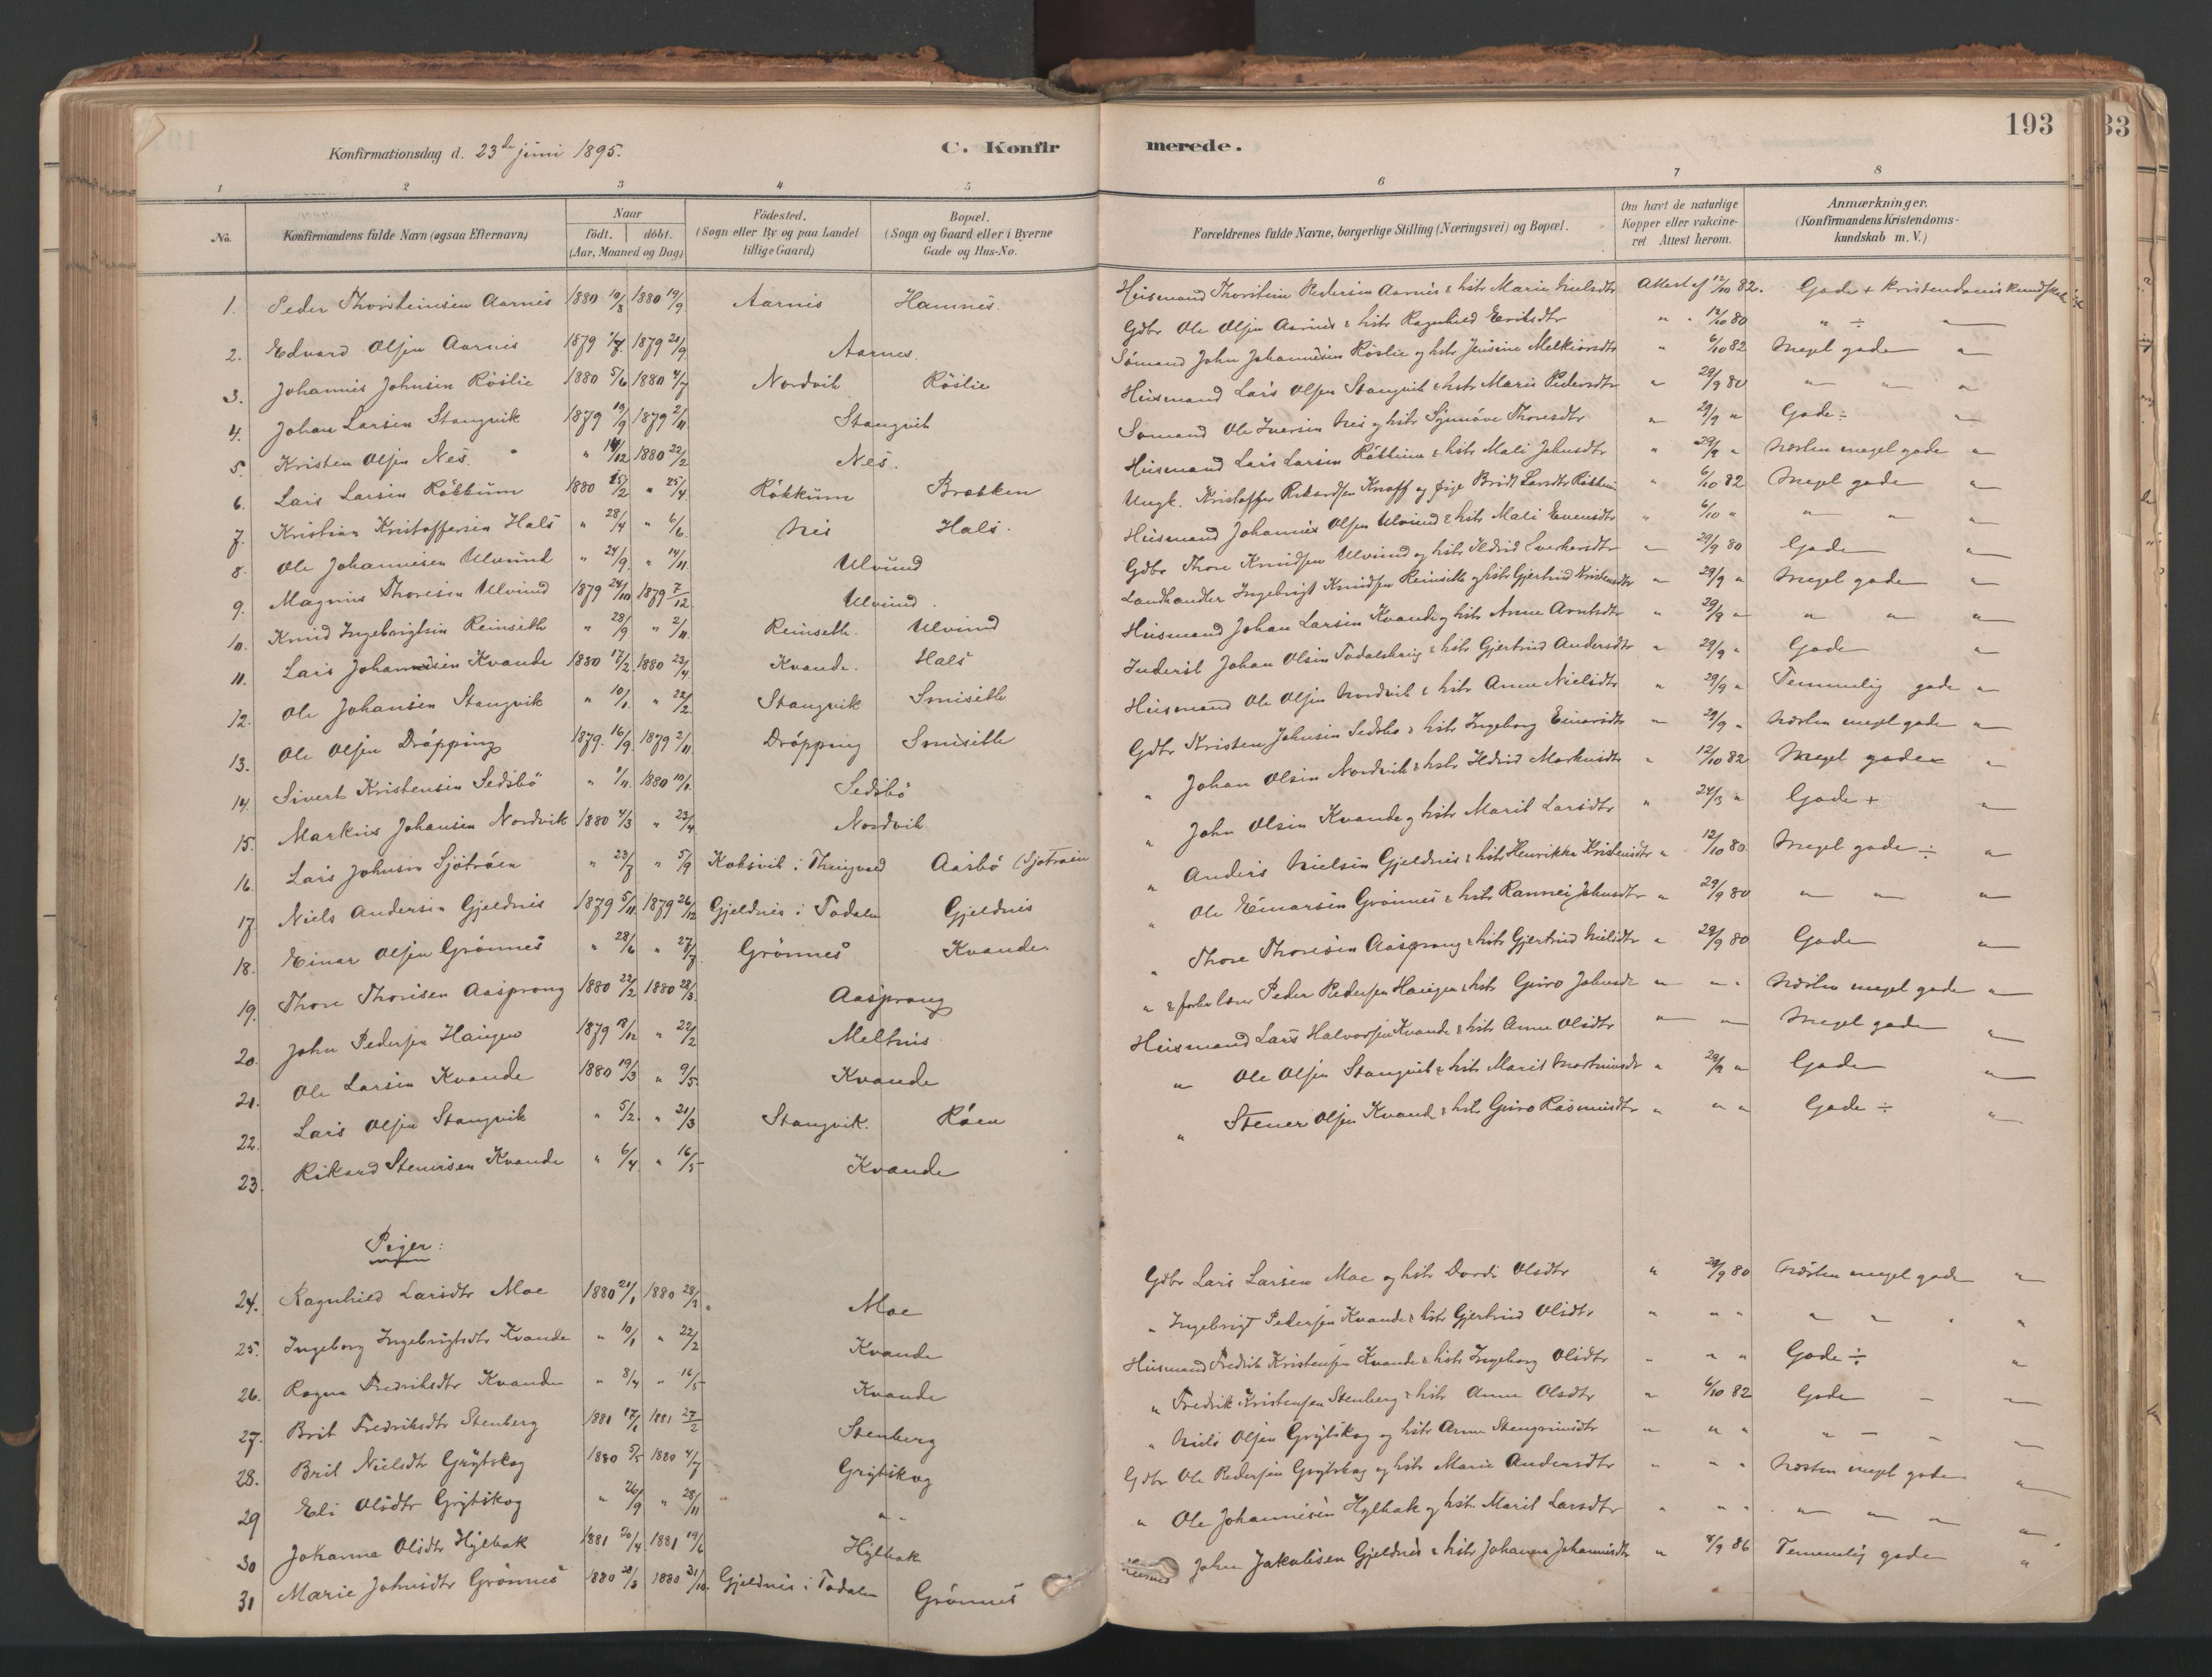 193
Konfirmationsdag d. 23de juni 1895.
C. Konfirmerede.
1 2 3 4 5 6 7 8
No. Konfirmandens fulde Navn (ogsaa Efternavn) Naar født. døbt. (Aar, Maaned og Dag) Födested. (Sogn eller By og paa Landet tillige Gaard) Bopæl. (Sogn og Gaard eller i Byerne Gade og Hus-No. Forældrenes fulde Navne, borgerlige Stilling (Næringsvei) og Bopæl. Om havt de naturlige Kopper eller vakcineret. Attest herom. Anmærkninger. (Konfirmandens Kristendomskundskab m. V.)
1. Peder Thorsteinsen Aarnes 1880 10/8 1880 19/9 Aarnes Hamnes. Husmand Thorstein Pedersen Aarnes & hstr Marie Nielsdtr Attest af 12/10 82. Gode + Kristendomskundskab
2. Edvard Olsen Aarnes 1879 1879 21/9 Aarnes. Gdbr Ole Olsen Aarnes & hstr Ragnhild Eriksdtr " " 12/10 80 " ÷ "
3. Johannes Johnsen Röslie 1880 5/6 1880 4/7 Nordvik Röslie Sömand John Johannesen Röslie og hstr Jensine Melkiorsdtr " 6/10 82 Meget gode "
4. Johan Larsen Stangvik 1879 19/9 1879 2/11 Stangvik Husmand Lars Olsen Stangvik & hstr Marie Pedersdtr " 29/9 80 " " "
5. Kristen Olsen Nes. " 14/12 1880 22/2 Nes. Sömand Ole Iversen Nes og hstr Synnöve Thoresdtr " 29/9 " Gode ÷ "
6. Lars Larsen Rökkum 1880 15/2 " 25/4 Rökkum Brækken Husmand Lars Larsen Rökkum & hstr Mali Johnsdtr " 29/9 " Næsten meget gode "
7. Kristian Kristoffersen Hals " 28/4 " 6/6. Nes Hals. Ungk. Kristoffer Rikardsen Knoff og pige Brit Larsdtr Rökkum " 6/10 82 Meget gode "
8. Ole Johannesen Ulvund " 24/9. " 14/11. Ulvund Husmand Johannes Olsen Ulvund & hstr Mali Evensdtr " 6/10 " " " "
9. Magnus Thoresen Ulvund 1879 24/10 1879 7/12 Ulvund. Gdbr Thore Knudsen Ulvund og hstr Ildrid Sverkersdtr " 29/9 80 Gode "
10. Knud Ingebrigtsen Reinseth " 28/9 " 2/11. Reinseth. Ulvund Landhandler Ingebrigt Knudsen Reinseth og hstr Gjertrud Kristensdtr " 29/9 " Meget gode "
11. Lars Johansen Kvande 1880 17/2 1880 23/4 Kvande. Hals Husmand Johan Larsen Kvande og hstr Anne Arntsdtr " 29/9 " " " "
12. Ole Johansen Stangvik " 10/1. " 22/2. Stangvik Smiseth Inderst Johan Olsen Todalshaug & hstr Gjertrud Andersdtr " 29/9 " Gode "
13. Ole Olsen Dröpping 1879. 16/9. 1879 2/11 Dröpping Smiseth Husmand Ole Olsen Nordvik & hstr Anne Nielsdtr " 29/9 " Temmelig gode "
14. Sivert Kristensen Sedsbö " 1/11. 1880 10/1. Sedsbö Gdbr Kristen Johnsen Sedsbö & hstr Ingeborg Einarsdtr " 29/9 " Næsten meget gode "
15. Markus Johansen Nordvik 1880 4/3 " 23/4 Nordvik " Johan Olsen Nordvik & hstr Ildrid Markusdtr " 12/10 82 Meget gode "
16. Lars Johnsen Sjötröen " 23/7 " 5/9 Koksvik i Thingvold Aasbö (Sjötröen " John Olsen Kvande og hstr Marit Larsdtr " 24/3 " Gode + "
17. Niels Andersen Gjeldnes 1879 5/11 1879 26/12 Gjeldnes i Todalen Gjeldnes " Anders Nielsen Gjeldnes & hstr Henrikke Kristensdtr " 12/10 80. Meget gode ÷ "
18. Einar Olsen Grönnes " 28/6 " 27/7. Grönnes Kvande. " Ole Einarsen Grönnes & hstr Rannei Johnsdtr " 29/9 80 " " "
19. Thore Thoresen Aasprong 1880 22/2 1880 28/3. Aasprong " Thore Thoresen Aasprong & hstr Gjertrud Nielsdtr " 29/9 80 Gode "
20. John Pedersen Haugen 1879 8/12 " 22/2 Melhus " & Peder Pedersen Haugen & hstr Guro Johnsdtr " " " Næsten meget gode "
21. Ole Larsen Kvande 1880 19/3 " 9/5. Kvande Husmand Lars Halvorsen Kvande & hstr Anne Olsdtr " " Meget gode "
22. Lars Olsen Stangvik " 5/2. " 21/3 Stangvik. Röen " Ole Olsen Stangvik & hstr Marit " 29/9 " Gode "
23. Rikard Stenersen Kvande " 6/4. " 16/5 Kvande " Stener Olsen Kvande & hstr Guro Rasmusdtr " " " Gode ÷ "
Piger:
24. Ragnhild Larsdtr Moe 1880 21/1 1880 28/3. Moe Gdbr Lars Larsen Moe og hstr Dordi Olsdtr " 29/9 80 Næsten meget gode "
25. Ingeborg Ingebrigtsdtr Kvande " 10/1 " 22/2 Kvande " Ingebrigt Pedersen Kvande & hstr Gjertrud Olsdtr " " " " " "
26. Ragna Fredriksdtr Kvande " 8/4 " 16/5 Kvande Husmand Fredrik Kristensen Kvande & hstr Ingeborg Olsdtr " " " Gode ÷ "
27. Brit Fredriksdtr Stenberg 1881 17/1 1881 27/2 Stenberg " Fredrik Kristensen Stenberg & hstr Anne Olsdtr " 6/10 82 Gode "
28. Brit Nielsdtr Grytskog 1880 5/5 1880 4/7 Grytskog " Niels Olsen Grytskog og hstr Anne Stengrimsdtr " " " " "
29 Eli Olsdtr Grytskog " 26/9 " 28/11 " Gdbr Ole Pedersen Grytskog og hstr Marie Andersdtr " " " Næsten meget gode "
30 Johanna Olsdtr Hylbak 1881 20/4. 1881 19/6 Hylbak " Ole Johannesen Hylbak og hstr Marit Larsdtr " " " " " "
31 Marie Johnsdtr Grönnes 1880 28/8 1880 31/10. Gjeldnes i Todalen Grönnes John Jakobsen Gjeldnes & hstr Johanna Johannesdtr " 8/9 86 Temmelig gode "